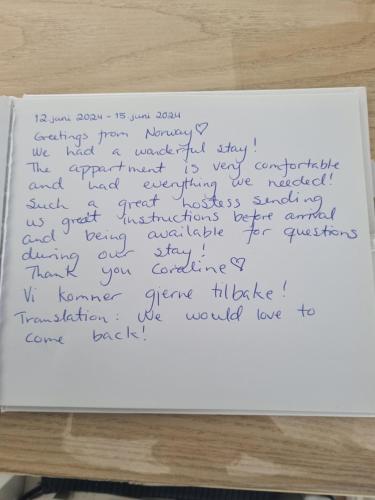 12 juni 2024 - 15 juni 2024
Greetings from Norway♡
We had a wonderful stay!
The appartment is very comfortable
and had everything we needed!
Such a great hostess sending
us great instructions before arrival
and being available for questions
during our stay!
Thank you Coraline♡
Vi kommer gjerne tilbake!
Translation: We would love to
come back!